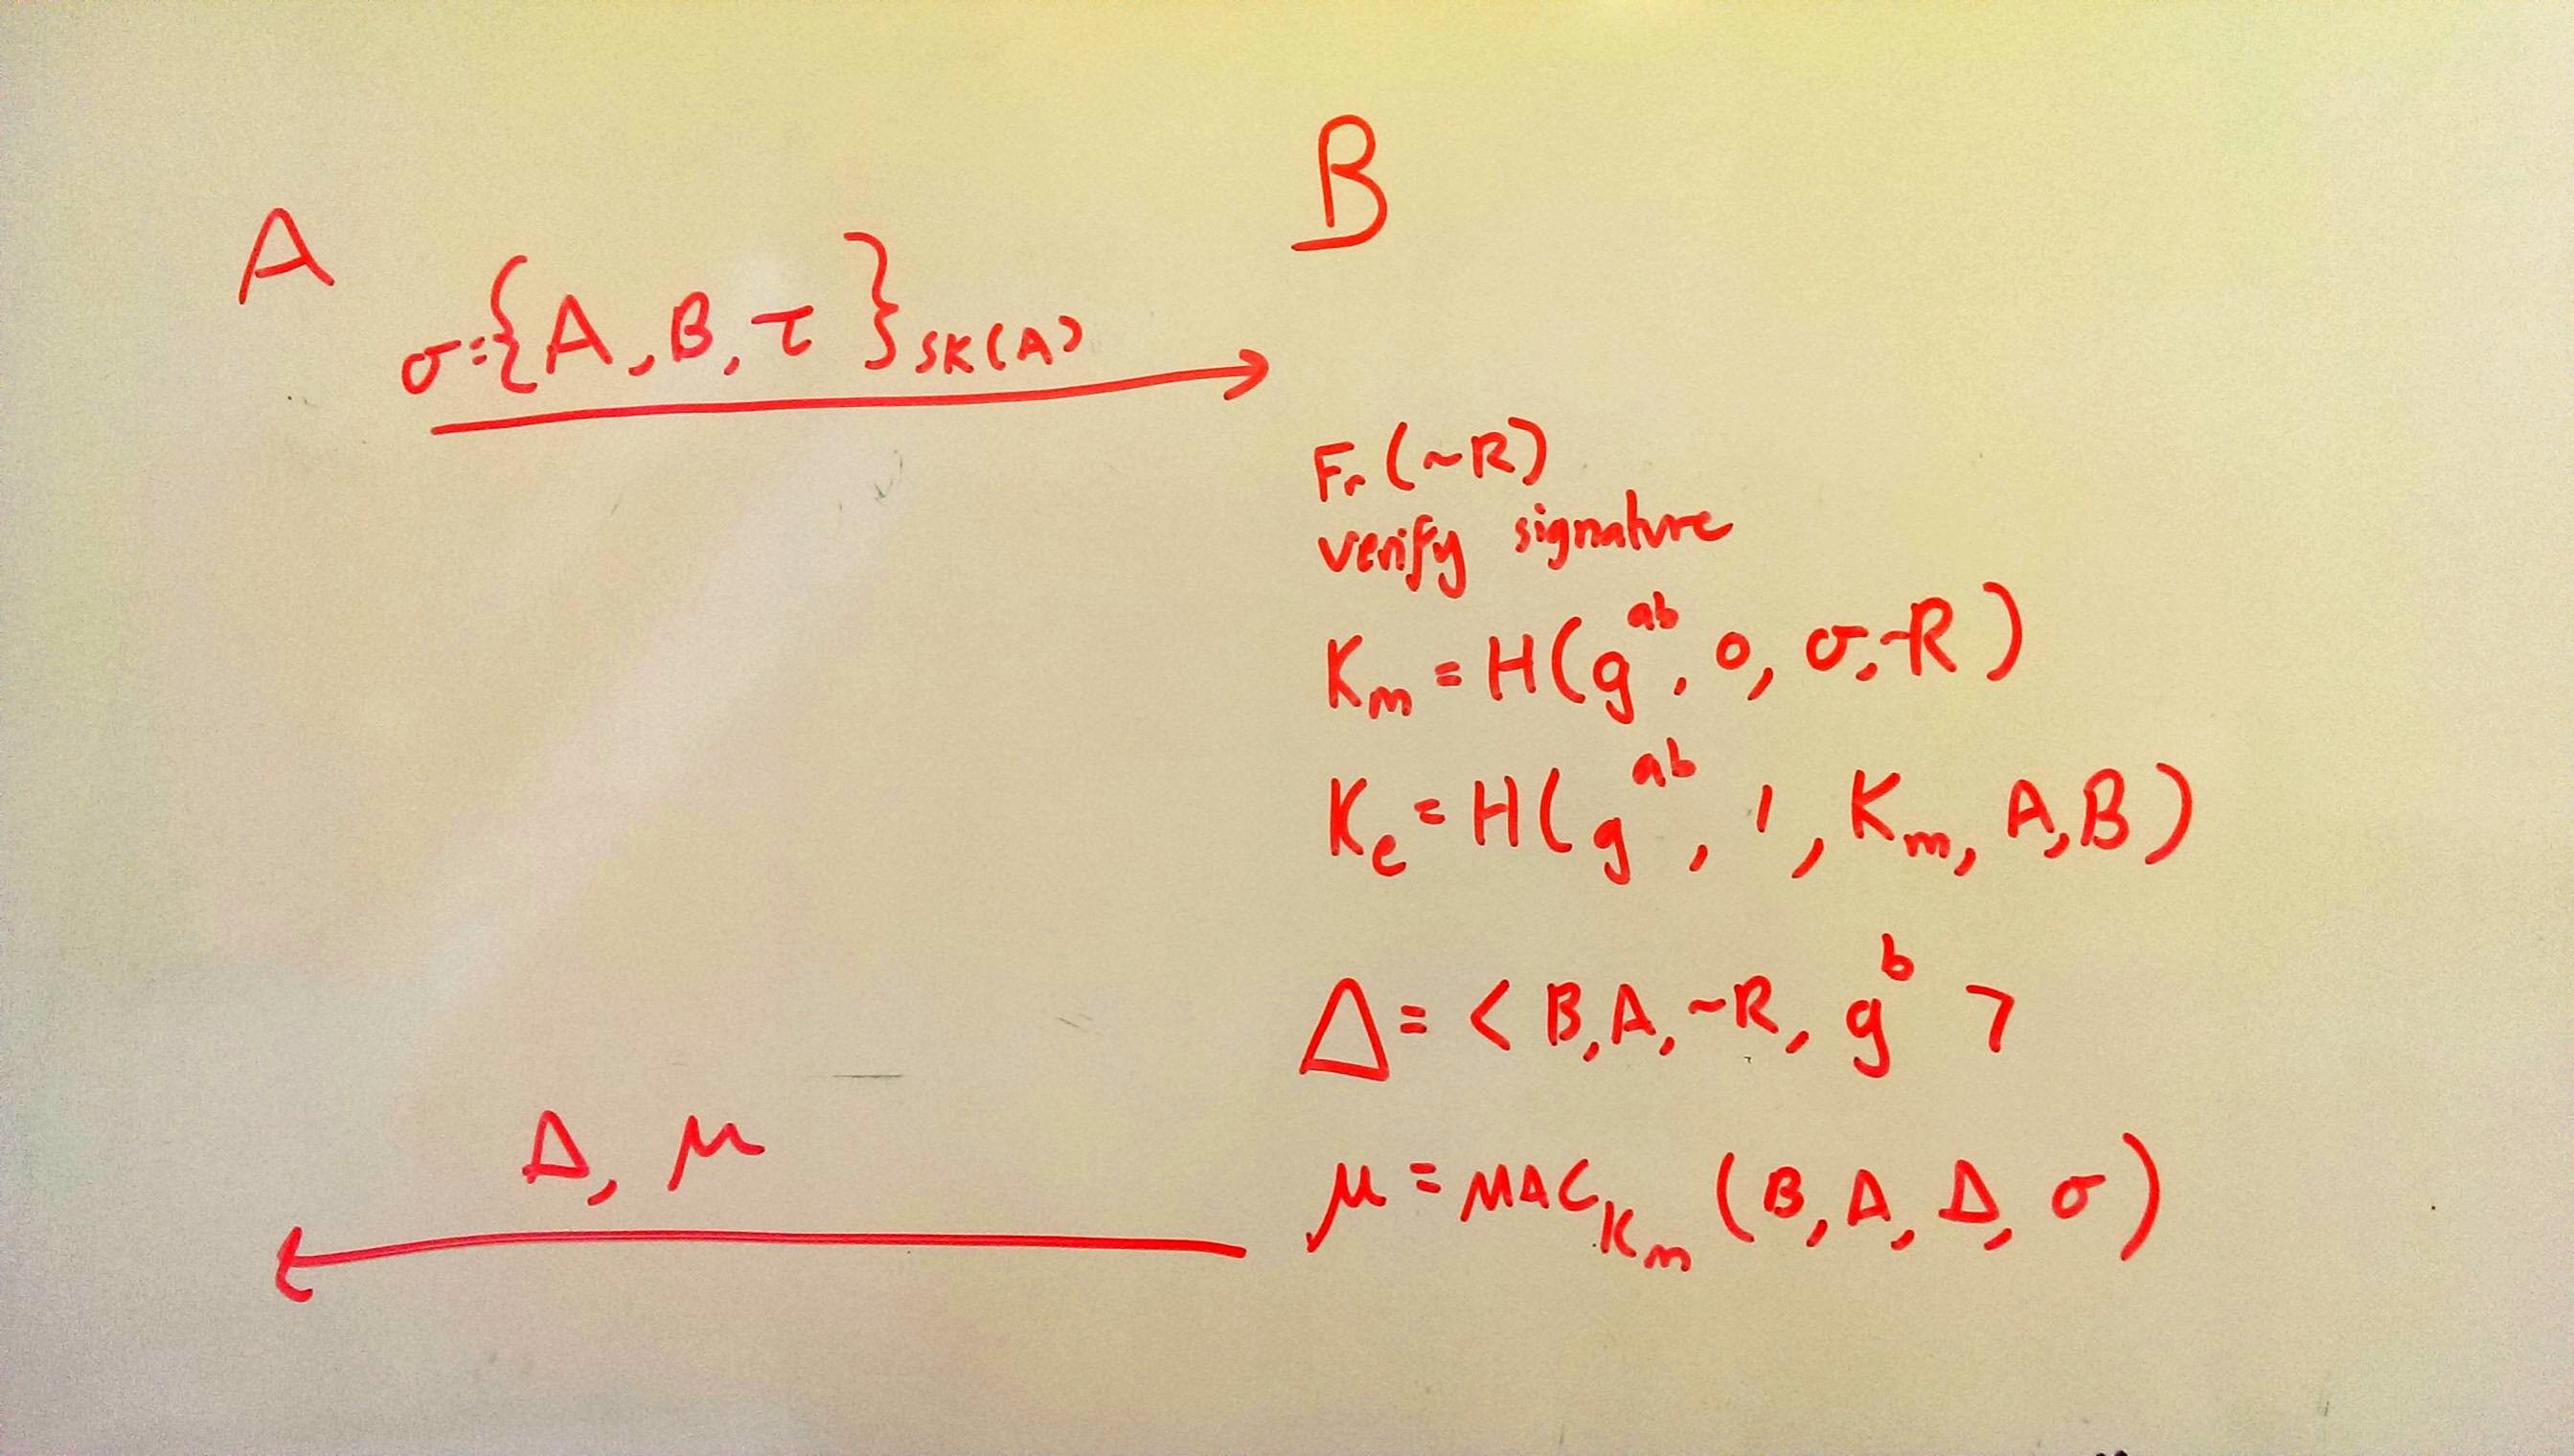 A
B
σ={A, B, τ}SK(A)
Fr(~R)
verify signature
Km = H(g^ab, 0, σ, ~R)
Ke = H(g^ab, 1, Km, A, B)
Δ = <B, A, ~R, g^b>
Δ, μ
μ = MAC_Km (B, A, Δ, σ)